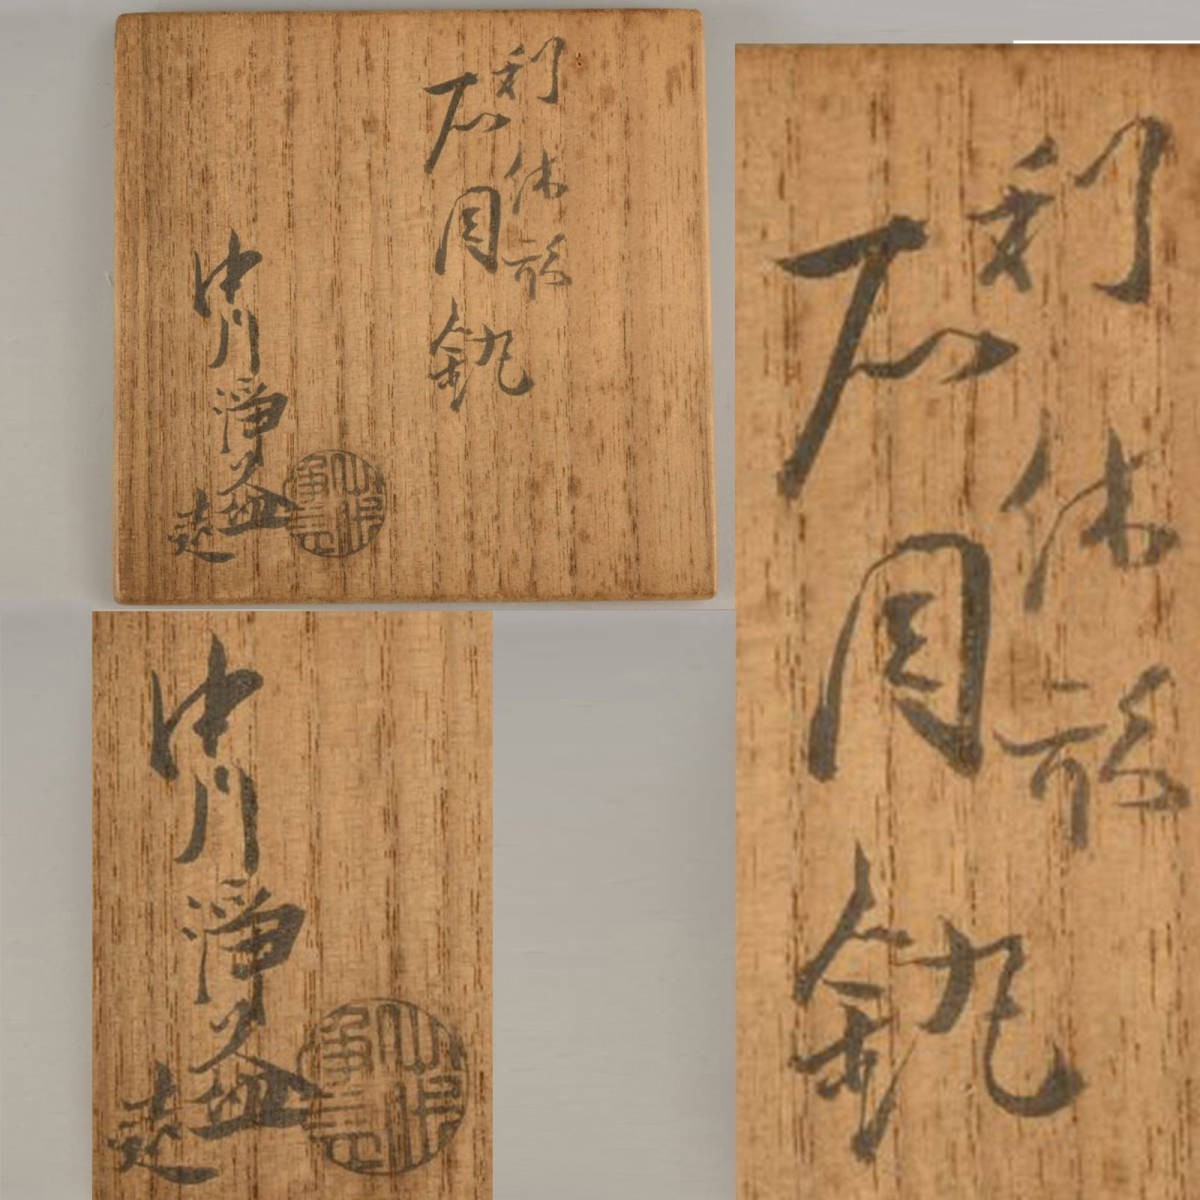 利休形
石目釻
中川淨益
造
中川淨益
造
利休形
石目釻